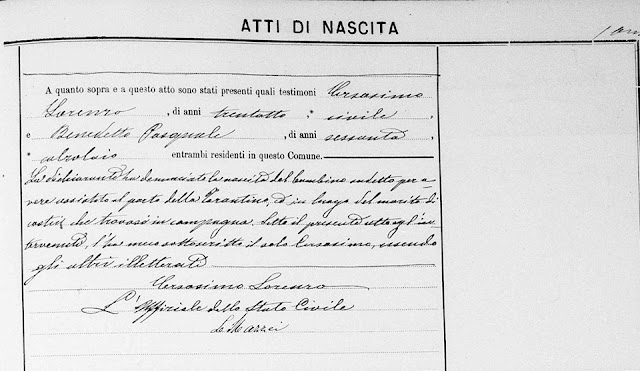 ATTI DI NASCITA
A quanto sopra e a questo atto sono stati presenti quali testimoni Cersosimo
Lorenzo, di anni trentotto, civile,
e Benedetto Pasquale, di anni sessanta,
calzolaio entrambi residenti in questo Comune.
La dichiarante ha denunciato la nascita del bambino sudetto per a-
vere assistito al parto della Tarantino, ed in luogo del marito di
costei che trovasi in campagna. Letto il presente atto agl'in-
tervenuti, l'ha meco sottoscritto il solo Cersosimo, essendo
gli altri illetterati
Cersosimo Lorenzo
L'Uffiziale dello Stato Civile